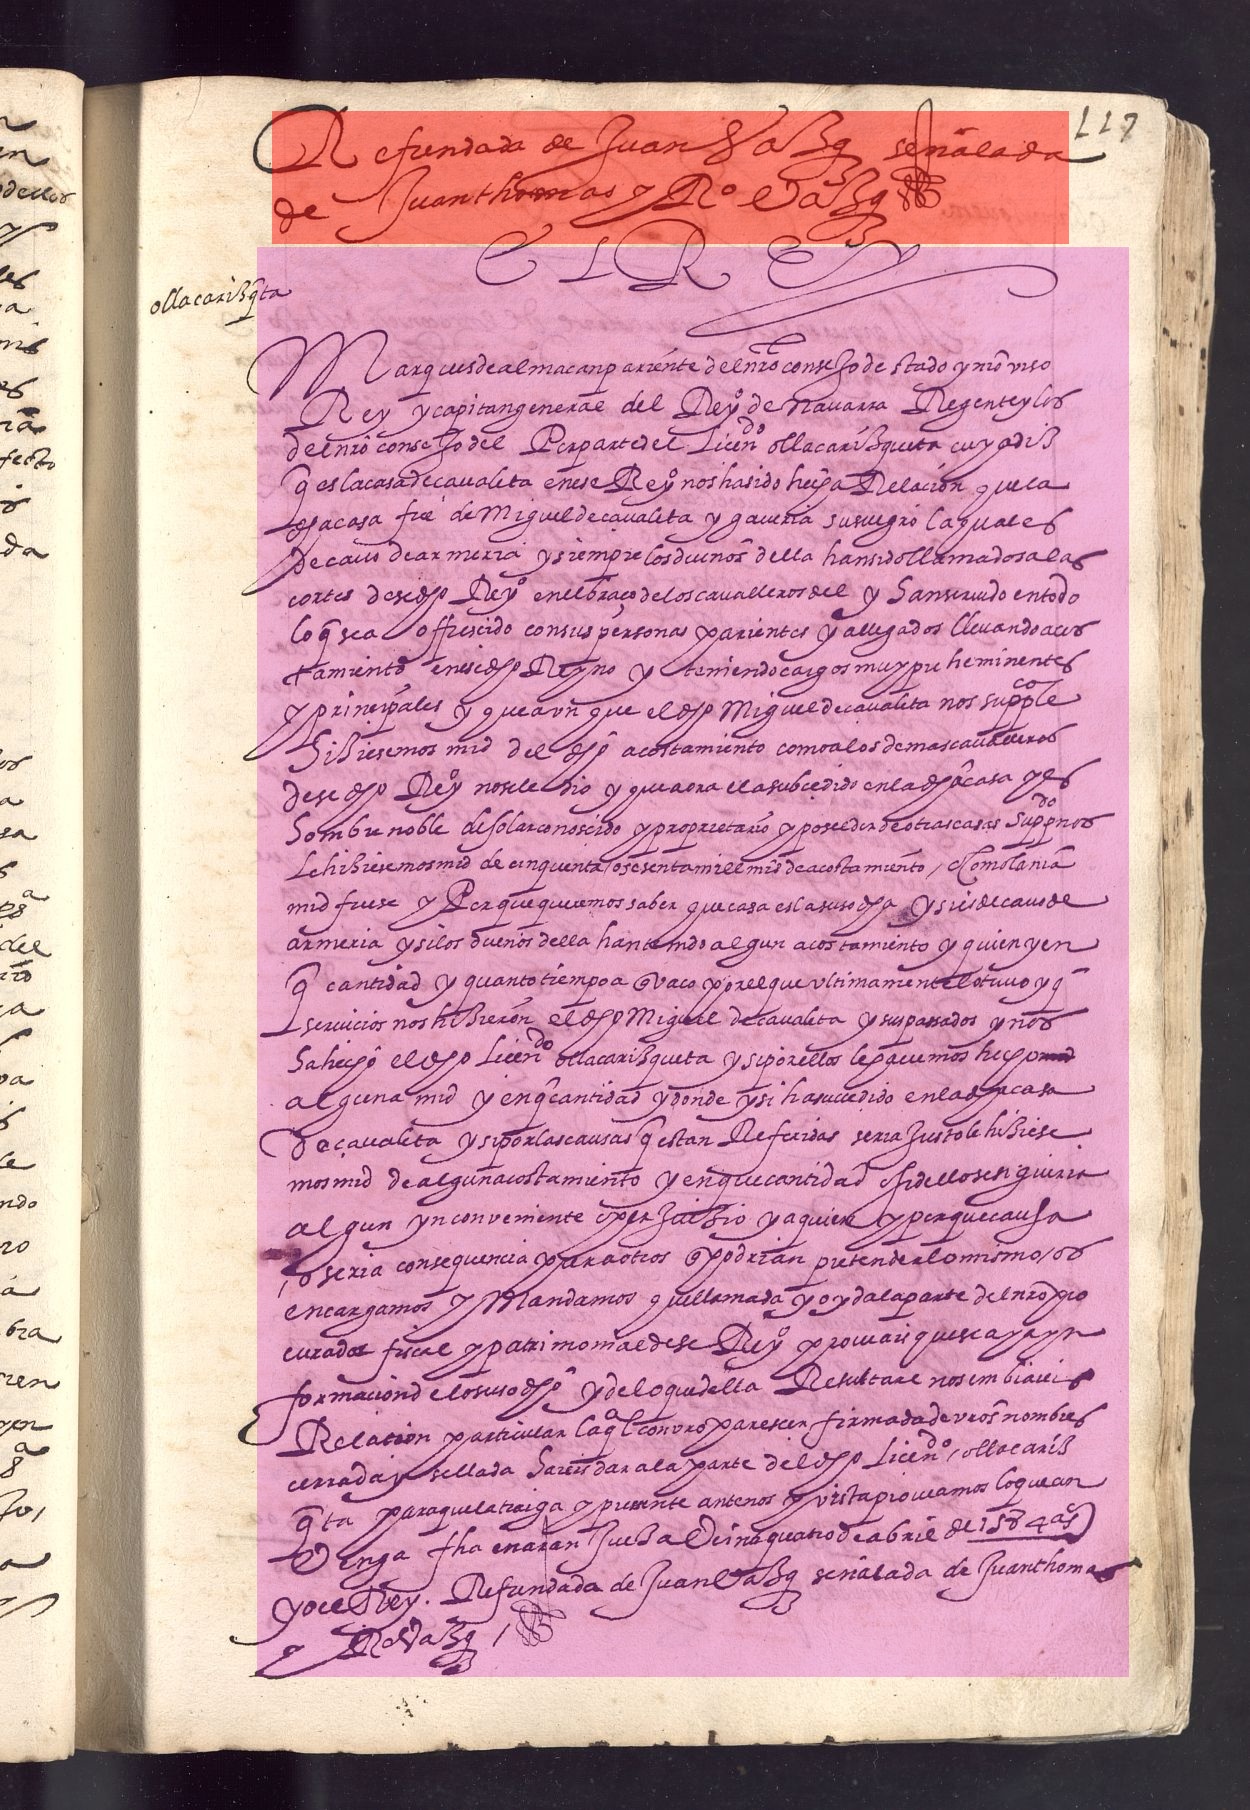 117
Refundada de Juan Vazq señalada
de Juan thomas y Ro Vazq
El Rey
ollacarizqta
Marques de almacan pariente del nro consejo de stado y nro viso
Rey y capitan general del Reyo de navarra Regente y los
del nro consejo del Por parte del Licendo ollacarizqueta cuya diz
q es la casa de cavalita en ese Reyo nos ha sido hecha Relacion que la
dha casa fue de Miguel de cavalita y gaveria su suegro la qual es
de cavo de armeria y siempre los dueños della han sido llamados a las
cortes dese dho Reyo en el braço de los cavalleros del y han servido en todo
lo q sea offrescido con sus personas parientes y allegados llevando acos
tamiento en ese dho Reyno y teniendo cargos muy preheminentes
y principales y que aun que el dho Miguel de cavalita nos supplico
hiziesemos mrd del dho acostamiento como a los demas cavalleros
dese dho Reyo no se le dio y que aora el a subcedido en la dha casa y es
hombre noble de solar conoscido y proprietario y poseedor de otras casas suppdo nos
le hiziesemos mrd de cinquenta o sesenta mill mrs de acostamiento / o como la nra
mrd fuese y Porque queremos saber que casa es la suso dha y si es de cavo de
armeria y si los dueños della han tenido algun acostamiento y quien y en
q cantidad y quanto tiempo a q vaco y por el que ultimamente lo tuvo y q
servicios nos hizieron el dho Miguel de cavalita y sus passados y nos
ha hecho el dho Licendo ollacarizqueta y si por ellos le havemos hecho
alguna mrd y en q cantidad y donde y si ha sucedido en la dha casa
de çavalita y si por las causas q estan Referidas seria justo le hiziese
mos mrd de algun acostamiento y en que cantidad o si dello se siguiria
algun ynconveniente o perjuizio y a quien y por que causa
o seria consequencia para otros q podrian pretender lo mismo / os
encargamos y Mandamos que llamada y oyda la parte del nro pro
curador fiscal y patrimonial dese Reyo proveais que se aya yn
formacion de lo suso dho y de lo que della Resultare nos embiareis
Relacion particular la ql con vro parescer firmada de vros nombres
cerrada y sellada hareis dar a la parte del dho Licendo / ollacariz
qta para que la traiga y presente ante nos y vista proveamos lo que con
venga fha en aranjuez a veinaquatro de abril de 1584 as
yo el Rey. Refundada de Juan Vazq señalada de Juan thomas
y Ro Vazq /